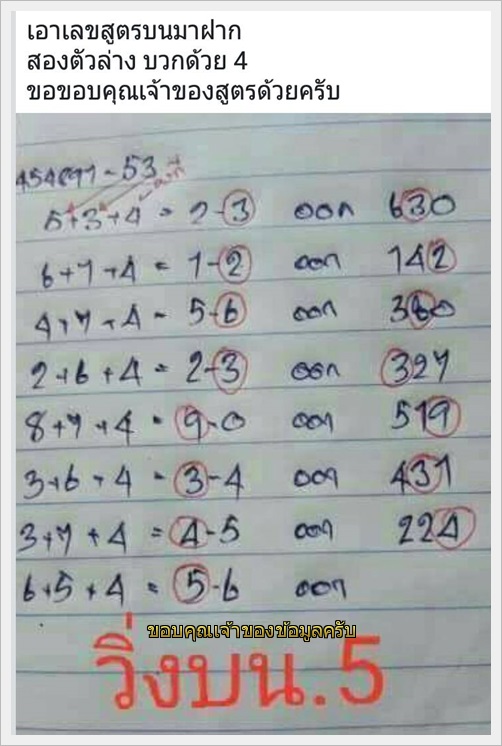 เอาเลขสูตรบนมาฝาก
สองตัวล่าง บวกด้วย 4
ขอขอบคุณเจ้าของสูตรด้วยครับ
454891-53
5+3+4 = 2-3 ออก 630
6+7+4 = 1-2 ออก 142
4+7+4 = 5-6 ออก 360
2+6+4 = 2-3 ออก 327
8+7+4 = 9-0 ออก 519
3+6+4 = 3-4 ออก 431
3+7+4 = 4-5 ออก 224
6+5+4 = 5-6 ออก
ขอบคุณเจ้าของข้อมูลครับ
วิ่งบน.5